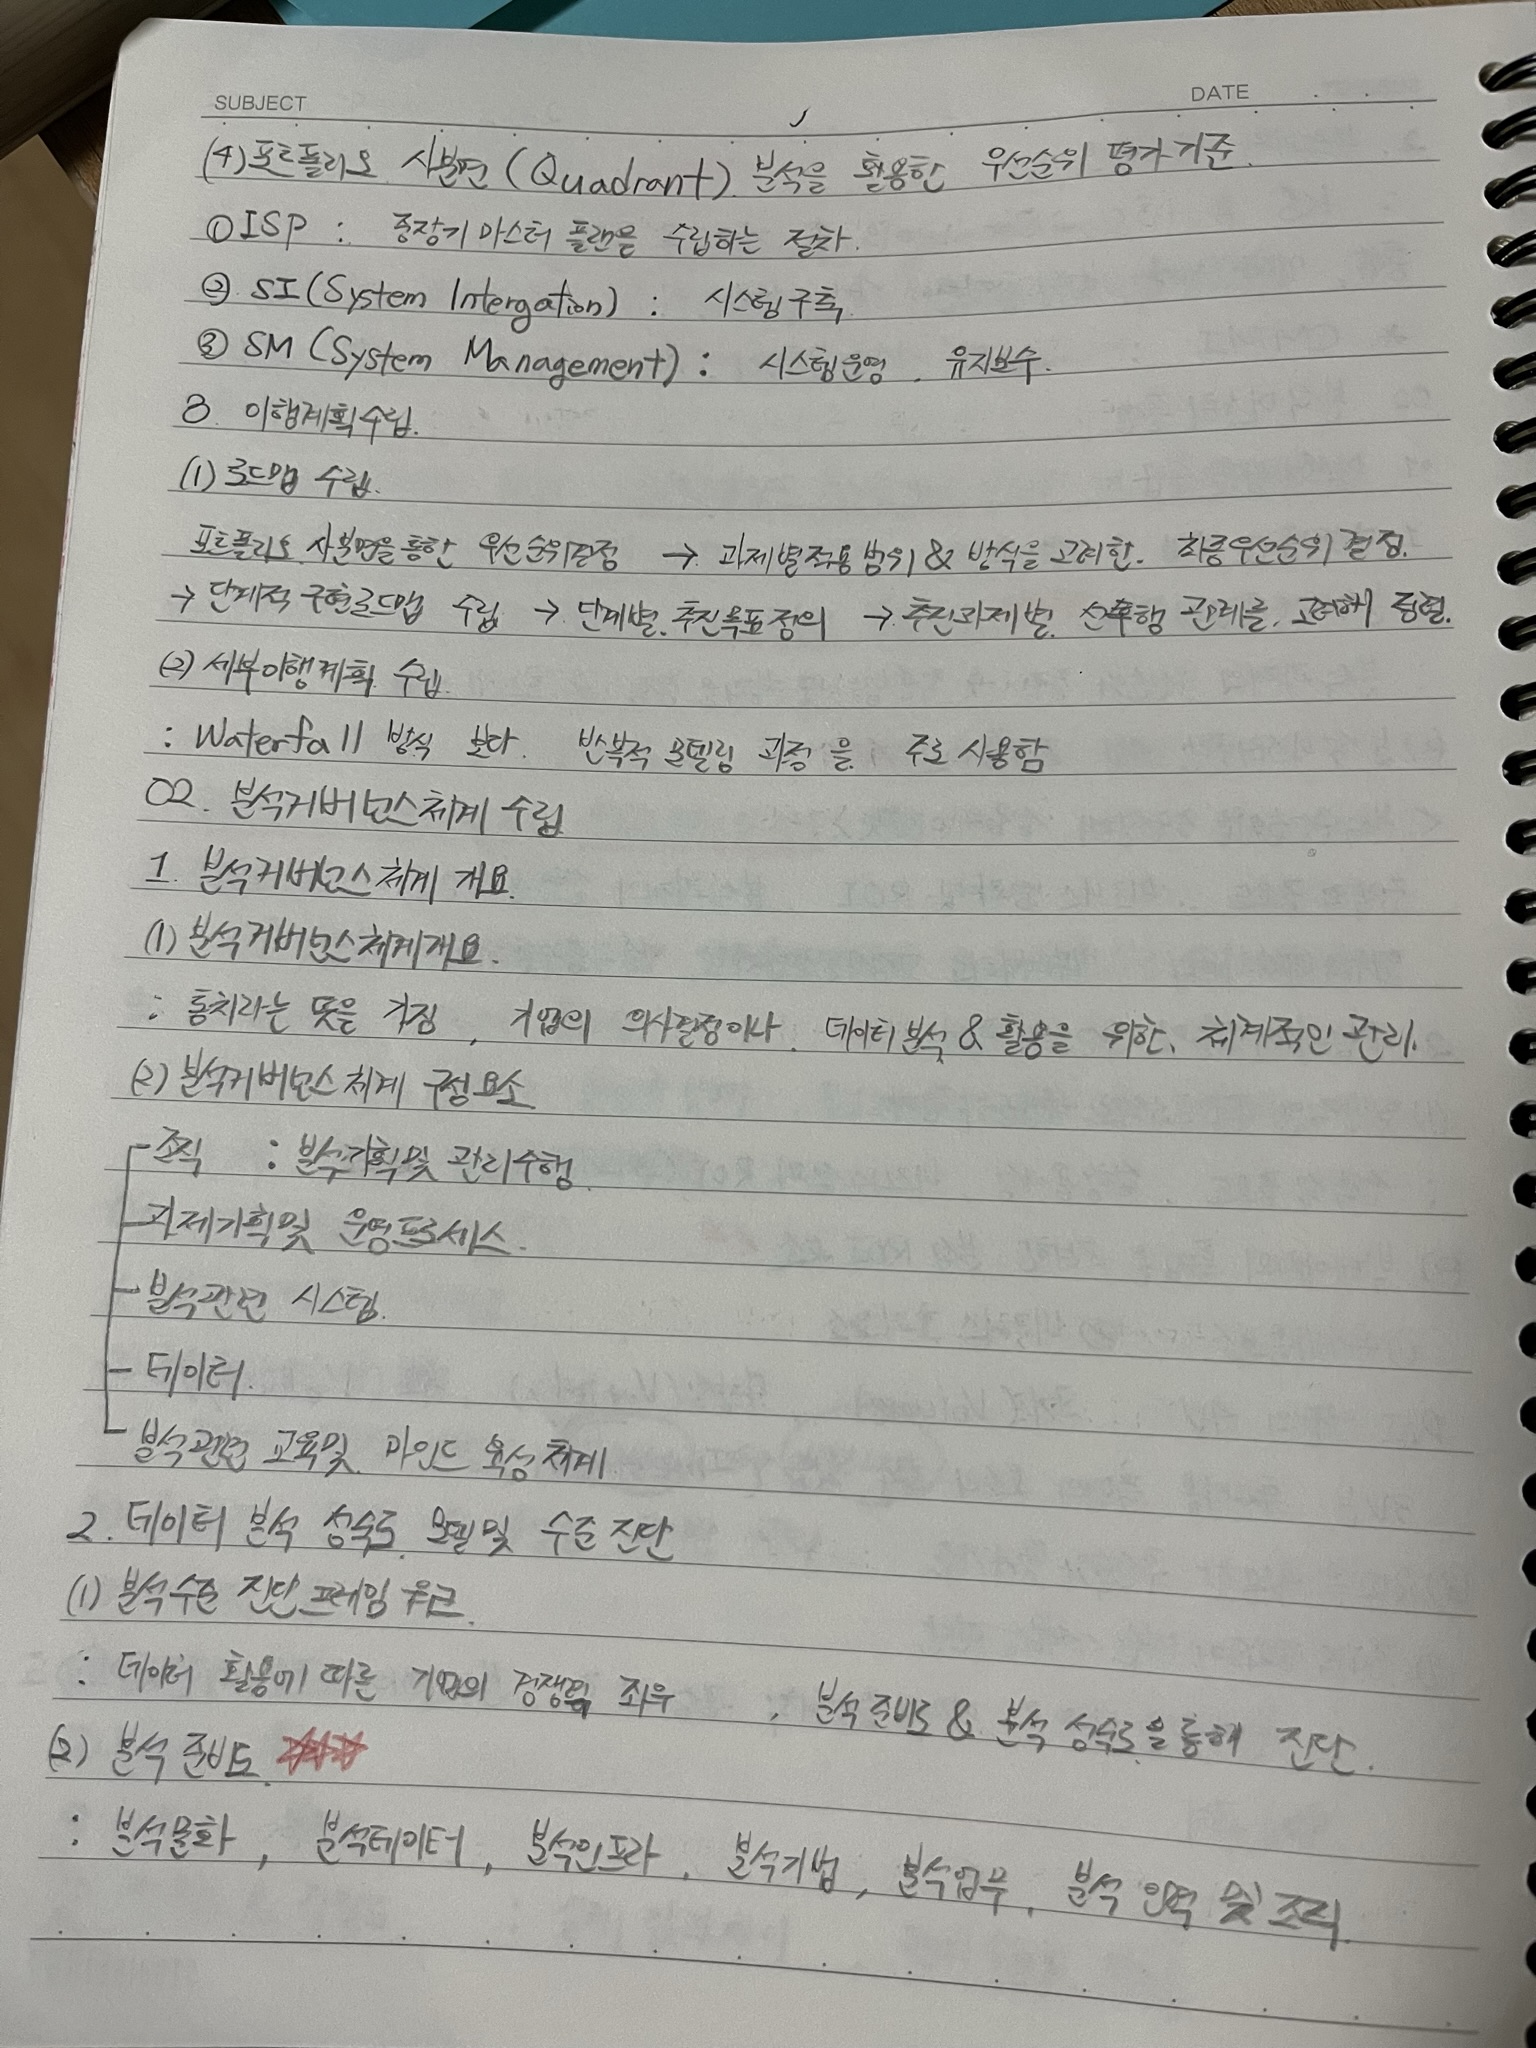 SUBJECT
DATE
(4) 포트폴리오 사분면 (Quadrant) 분석을 활용한 우선순위 평가기준.
① ISP : 중장기 마스터 플랜을 수립하는 절차.
② SI (System Intergation) : 시스템 구축.
③ SM (System Management) : 시스템 운영, 유지보수.
3. 이행계획 수립.
(1) 로드맵 수립.
포트폴리오 사분면을 통한 우선순위결정 → 과제별 적용범위 & 방식을 고려한. 최종우선순위 결정.
→ 단계적 구현로드맵 수립 → 단계별 추진목표 정의 → 추진과제별 선후행 관계를, 고려해 정렬.
(2) 세부이행계획 수립.
: Waterfall 방식 보다. 반복적 모델링 과정 을 주로 사용함
02. 분석거버넌스체계 수립
1. 분석거버넌스체계 개요.
(1) 분석거버넌스체계개요.
: 통치라는 뜻을 가짐, 기업의 의사결정이나. 데이터분석 & 활용을 위한, 체계적인 관리.
(2) 분석거버넌스 체계 구성요소
- 조직 : 분석기획및 관리수행
- 과제기획및 운영프로세스.
- 분석관련 시스템.
- 데이터.
- 분석관련 교육및 마인드 육성체계
2. 데이터 분석 성숙도 모델 및 수준 진단
(1) 분석수준 진단프레임 워크.
: 데이터 활용에 따른 기업의 경쟁력 좌우, 분석 준비도 & 분석 성숙도를 통해 진단.
(2) 분석 준비도.
: 분석문화, 분석데이터, 분석인프라, 분석기법, 분석업무, 분석 인력 및 조직